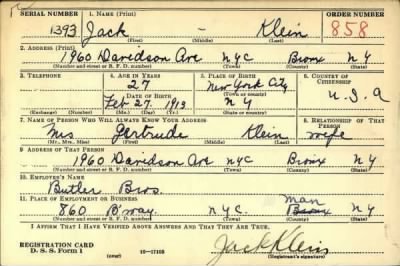 SERIAL NUMBER 1. NAME (Print) ORDER NUMBER
1393 Jack - Klein 858
(First) (Middle) (Last)
2. ADDRESS (Print)
1960 Davidson Ave NYC Bronx NY
(Number and street or R. F. D. number) (Town) (County) (State)
3. TELEPHONE 4. AGE IN YEARS 5. PLACE OF BIRTH 6. COUNTRY OF CITIZENSHIP
27 New York City
DATE OF BIRTH
Feb 27. 1913 NY U.S.A
(Exchange) (Number) (Mo.) (Day) (Yr.) (Town or county) (State or country)
7. NAME OF PERSON WHO WILL ALWAYS KNOW YOUR ADDRESS 8. RELATIONSHIP OF THAT PERSON
Mrs Gertrude Klein wife
(Mr., Mrs., Miss) (First) (Middle) (Last)
9. ADDRESS OF THAT PERSON
1960 Davidson Ave nyc Bronx NY
(Number and street or R. F. D. number) (Town) (County) (State)
10. EMPLOYER'S NAME
Butler Bros.
11. PLACE OF EMPLOYMENT OR BUSINESS man
860 B'way. N.Y.C. Bronx N Y
(Number and street or R. F. D. number) (Town) (County) (State)
I AFFIRM THAT I HAVE VERIFIED ABOVE ANSWERS AND THAT THEY ARE TRUE.
REGISTRATION CARD
D. S. S. Form 1 16-17105 Jack Klein
(over) (Registrant's signature)